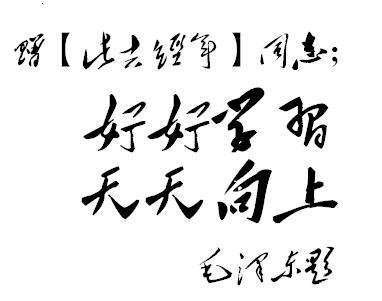 赠【此去經年】同志；
好好学習
天天向上
毛泽东题